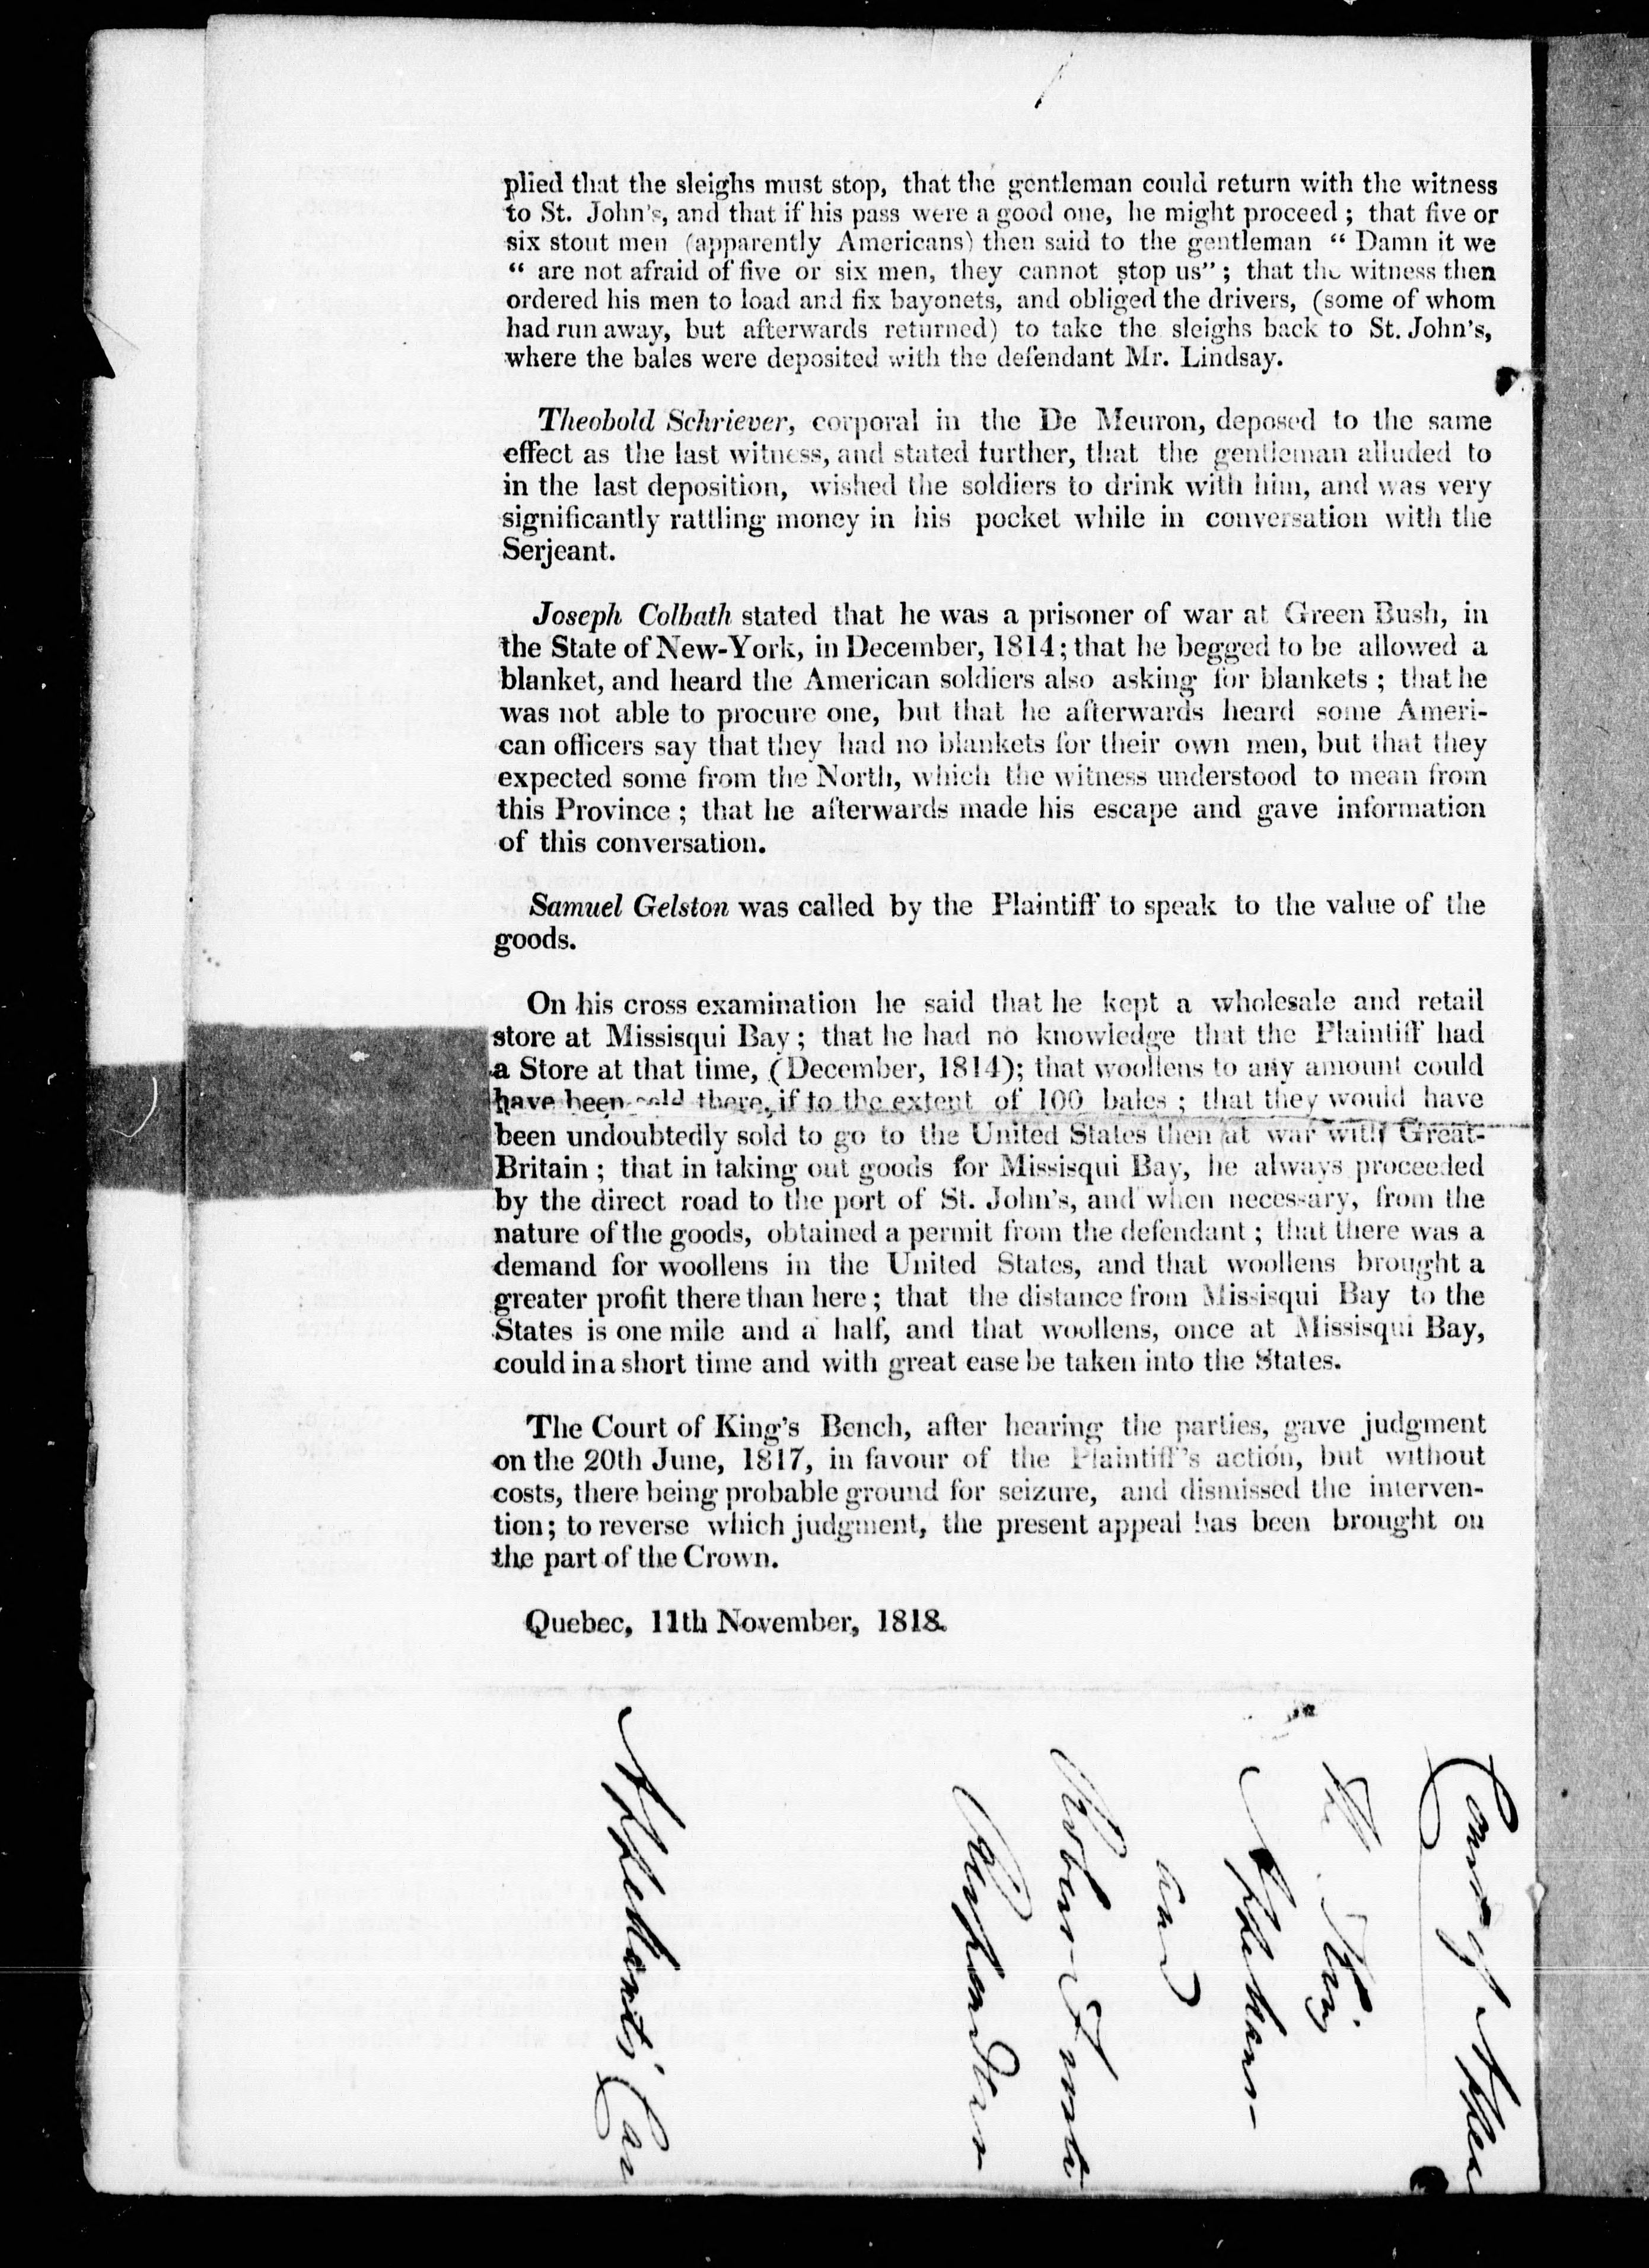 plied that the sleighs must stop, that the gentleman could return with the witness
to St. John's, and that if his pass were a good one, he might proceed ; that five or
six stout men (apparently Americans) then said to the gentleman “ Damn it we
“ are not afraid of five or six men, they cannot stop us” ; that the witness then
ordered his men to load and fix bayonets, and obliged the drivers, (some of whom
had run away, but afterwards returned) to take the sleighs back to St. John's,
where the bales were deposited with the defendant Mr. Lindsay.
Theobold Schriever, corporal in the De Meuron, deposed to the same
effect as the last witness, and stated further, that the gentleman alluded to
in the last deposition, wished the soldiers to drink with him, and was very
significantly rattling money in his pocket while in conversation with the
Serjeant.
Joseph Colbath stated that he was a prisoner of war at Green Bush, in
the State of New-York, in December, 1814; that he begged to be allowed a
blanket, and heard the American soldiers also asking for blankets ; that he
was not able to procure one, but that he afterwards heard some Ameri-
can officers say that they had no blankets for their own men, but that they
expected some from the North, which the witness understood to mean from
this Province ; that he afterwards made his escape and gave information
of this conversation.
Samuel Gelston was called by the Plaintiff to speak to the value of the
goods.
On his cross examination he said that he kept a wholesale and retail
store at Missisqui Bay ; that he had no knowledge that the Plaintiff had
a Store at that time, (December, 1814); that woollens to any amount could
have been sold there, if to the extent of 100 bales ; that they would have
been undoubtedly sold to go to the United States then at war with Great-
Britain ; that in taking out goods for Missisqui Bay, he always proceeded
by the direct road to the port of St. John's, and when necessary, from the
nature of the goods, obtained a permit from the defendant ; that there was a
demand for woollens in the United States, and that woollens brought a
greater profit there than here ; that the distance from Missisqui Bay to the
States is one mile and a half, and that woollens, once at Missisqui Bay,
could in a short time and with great ease be taken into the States.
The Court of King's Bench, after hearing the parties, gave judgment
on the 20th June, 1817, in favour of the Plaintiff's action, but without
costs, there being probable ground for seizure, and dismissed the interven-
tion ; to reverse which judgment, the present appeal has been brought on
the part of the Crown.
Quebec, 11th November, 1818.
Court of Appea
The King
Appellant
and
Respondent
Appellant's Cas